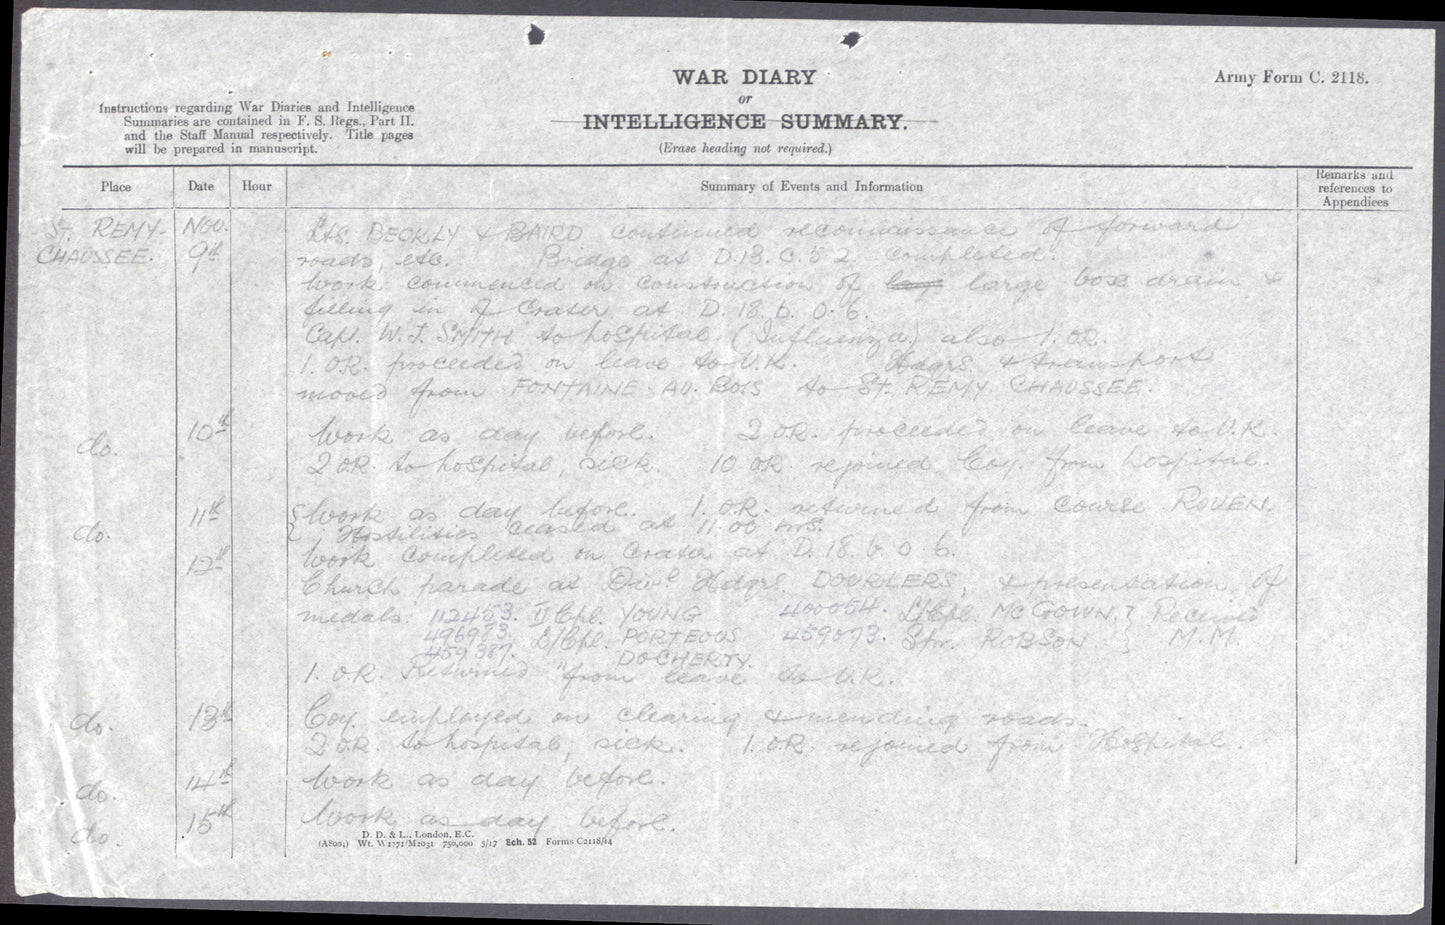 WAR DIARY
or
INTELLIGENCE SUMMARY.
(Erase heading not required.)
Army Form C. 2118.
Instructions regarding War Diaries and Intelligence
Summaries are contained in F. S. Regs., Part II.
and the Staff Manual respectively. Title pages
will be prepared in manuscript.
Place Date Hour Summary of Events and Information Remarks and references to Appendices
St. REMY- Nov. Lts. BECKLY & BAIRD continued reconnaissance of forward
CHAUSSEE. 9th roads, etc. Bridge at D.13.c.5.2. completed.
Work commenced on construction of large box drain &
filling in of Crater at D.18.b.0.6.
Capt. W.J. SMITH to hospital (Influenza) also 1.OR.
1.OR. proceeded on leave to U.K. Hdqrs. & transport
moved from FONTAINE-AU-BOIS to St. REMY CHAUSSEE.
do. 10th Work as day before. 2 OR. proceeded on leave to U.K.
2 OR. to hospital, sick. 10 OR. rejoined Coy. from hospital.
do. 11th Work as day before. 1.O.R. returned from course ROUEN.
Hostilities ceased at 11.00 hrs.
12th Work completed on Crater at D.18.b.0.6.
Church parade at Divl Hdqrs. DOURLERS, & presentation of
medals. 112453. II Cpl. YOUNG 400054. L/Cpl. McGOWN. } Received
496983. L/Cpl. PORTEOUS 459073. Spr. ROBSON } M.M.
459387. " DOCHERTY.
1.OR. Returned from leave to U.K.
do. 13th Coy. employed on clearing & mending roads.
2 OR. to hospital, sick. 1.OR. rejoined from Hospital.
do. 14th Work as day before.
do. 15th Work as day before.
D. D. & L., London, E.C.
(A8001) Wt. W1771/M2031 750,000 5/17 Sch. 52 Forms C2118/14